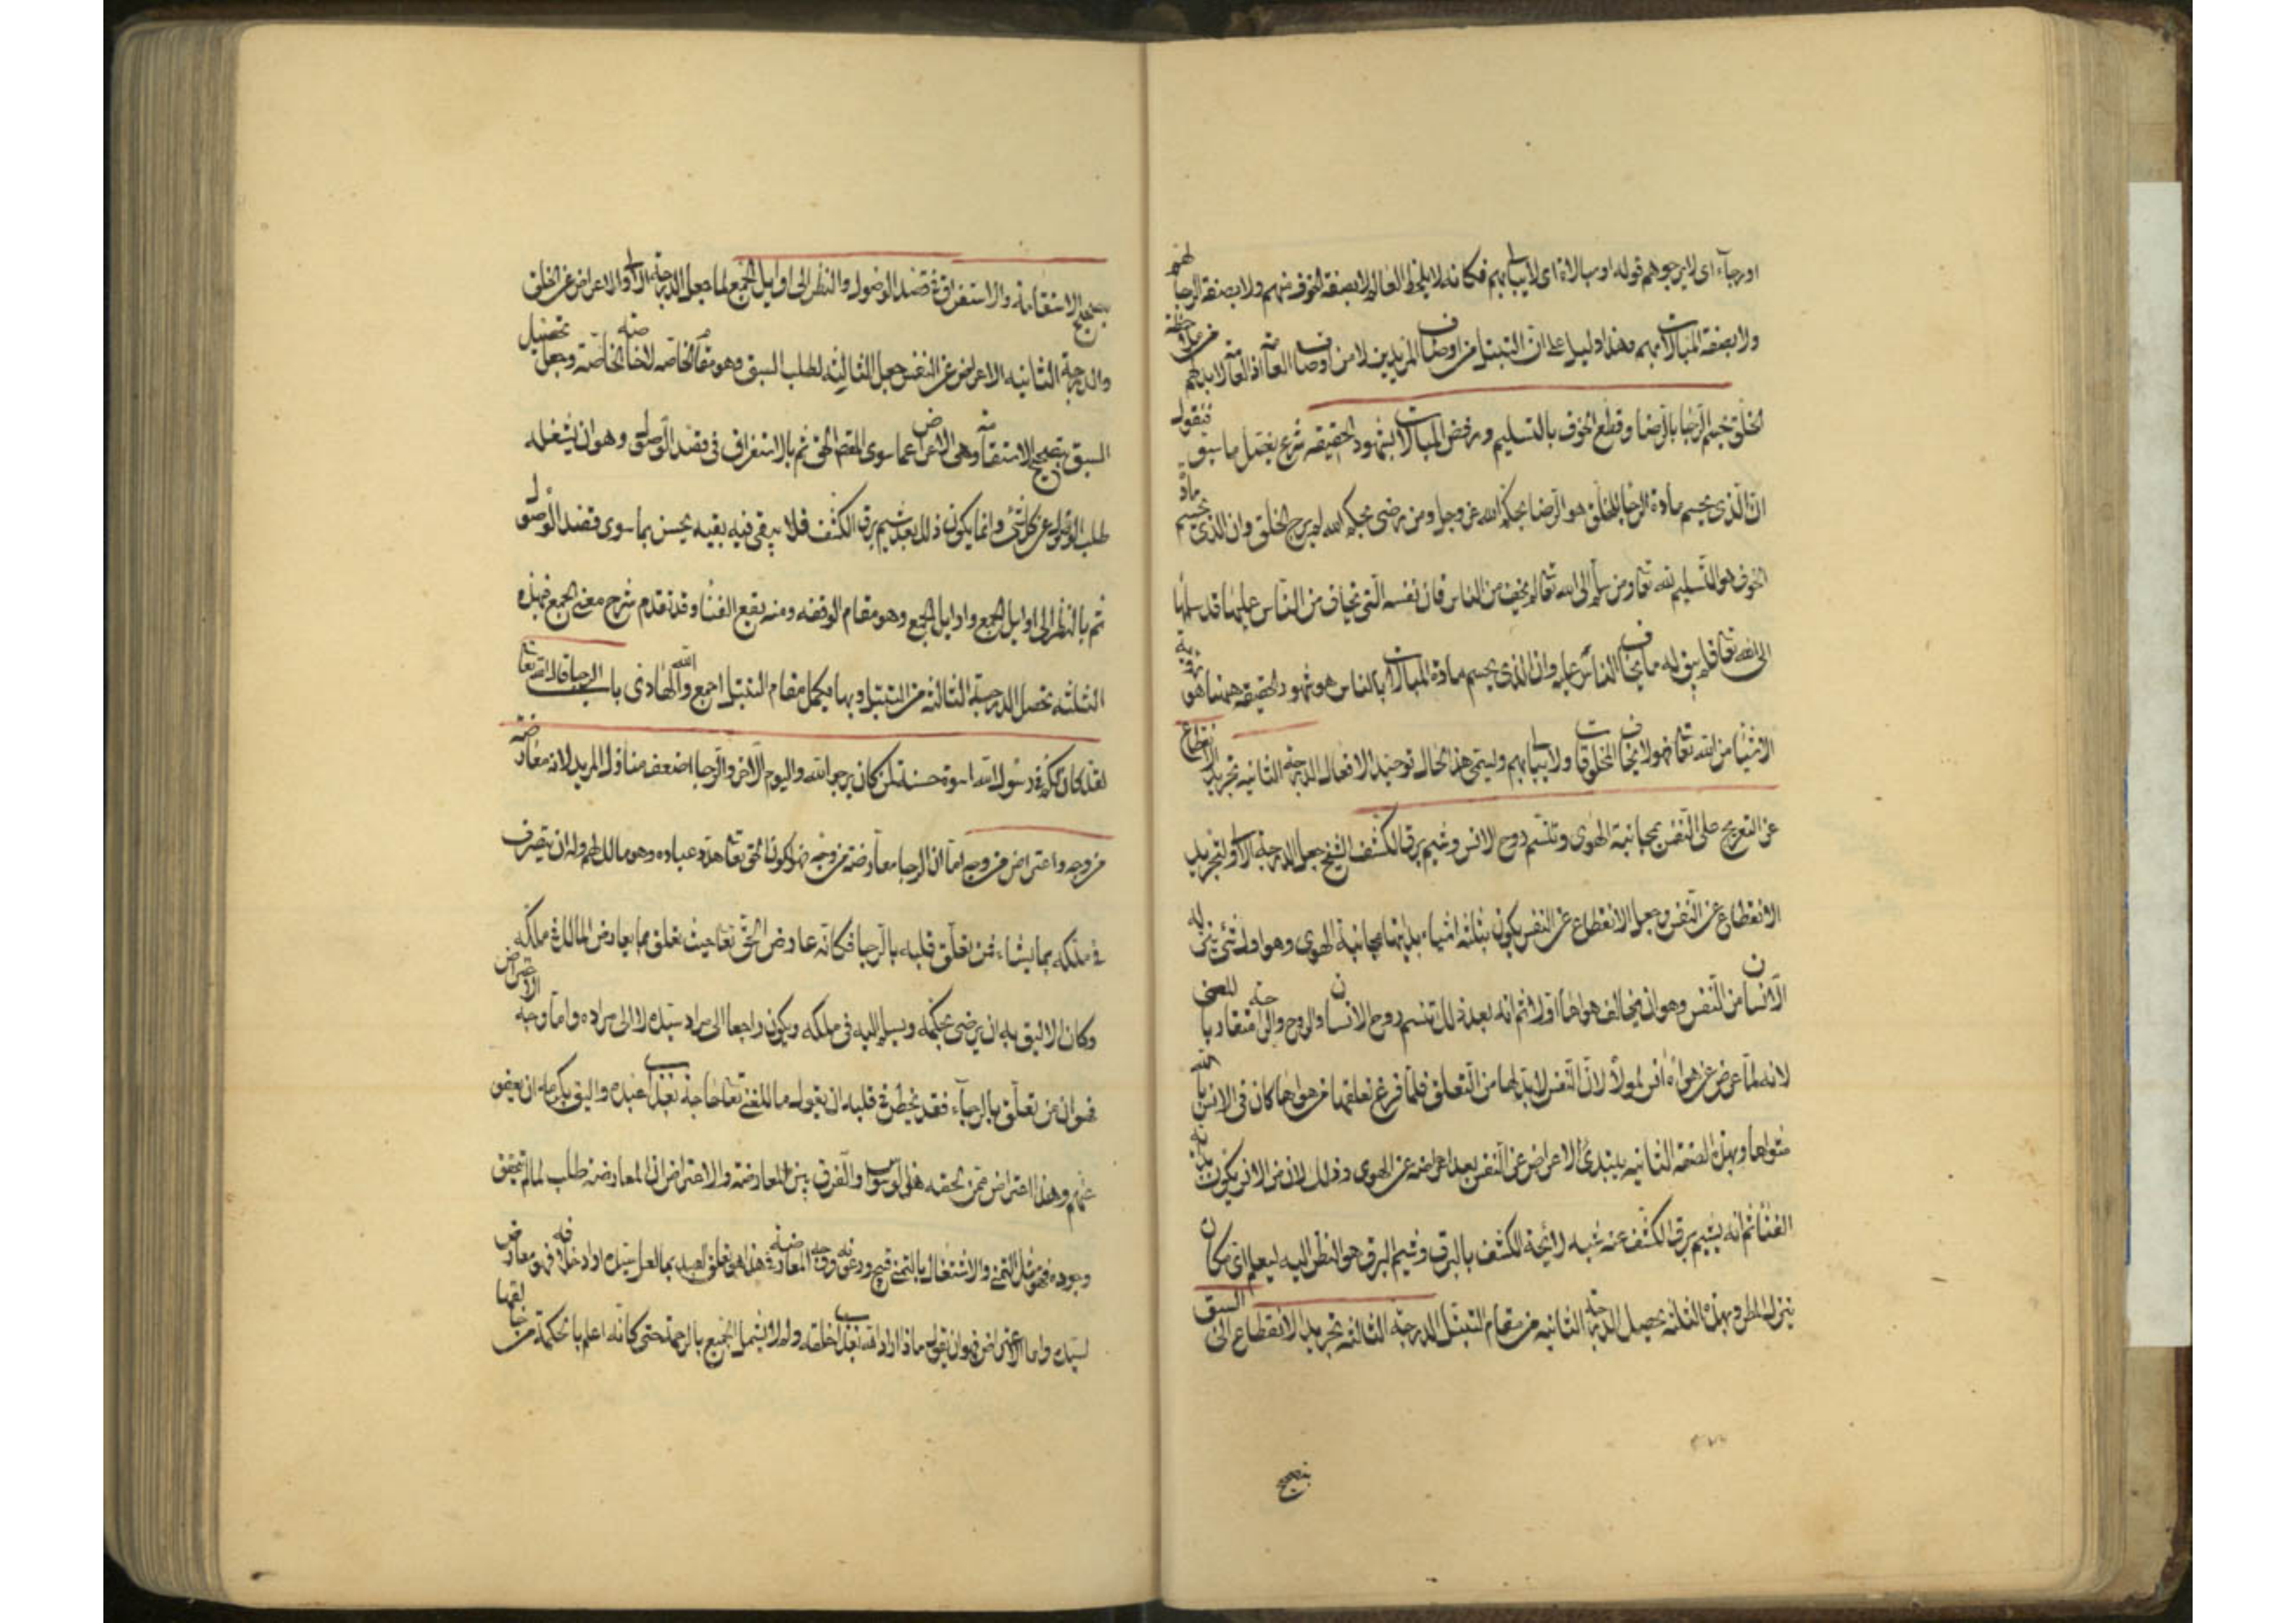 او رجاء اى لا يرجوهم قوله او مبالاة اى لا يبالى بهم فكانه لا يلحظ العالم لا بصفة الخوف منهم ولا بصفة الرجا لهم
ولا بصفة المبالات بهم وهذا دليل على ان التبتل من اوصاف المريدين لا من اوصاف العامة اذ العامة لا بد لهم من ملاحظة
الخلق بحسم الرجا بالرضا وقطع الخوف بالتسليم ورفض المبالات بشهود الحقيقه شرع يفصل ما سبق فنقول
ان الذى يحسم مادة الرجا للخلق هو الرضا بحكم الله عز وجل ومن رضى بحكم الله لم يرج الخلق وان الذى يحسم مادة
الخوف هو التسليم لله تعا ومن سلم الى الله تعا لم يخف من الناس فان نفسه التى يخاف من الناس عليها قد سلمها
الى الله تعا فلم يبق له ما يخاف الناس عليه وان الذى يحسم مادة المبالات بالناس هو شهود الحقيقه وههنا هو رؤية
الاشيا من الله تعا فهو لا يخاف المخلوقات ولا يبالى بهم ويسمى هذا الحال توحيد الافعال الدرجة الثانيه تجريد الانقطاع
عن التعريج على النفس بمجانبة الهوى وتنسم روح الانس وشيم برق الكشف الشيخ جعل الدرجة الاولى تجريد
الانقطاع عن النفس وجعل الانقطاع عن النفس يكون بثلثه اشياء بدايتها مجانبة الهوى وهو اول شئ ينهى له
الانسان من النفس وهو ان يخالف هواها اولا ثم انه بعد ذلك تنسم روح الانسان والروح والراحة متقاربا المعنى
لانه لما اعرض عن هواه انس لمولاه لان النفس لا بد لها من التعلق فلما فرغ تعلقها من هواها كان فى الانس بالله
مثواها وبهذه الصفه الثانيه يبتدئ الاعراض عن النفس بعد اعراضه عن الهوى وذلك لان من الانس يكون بداية
الفنا ثم انه يشيم برق الكشف عنه شبه رائحة الكشف بالبرق وشيم البرق هو النظر اليه ليعلم اى مكان
ينزل المطر وبهذه الثلثه يحصل الدرجة الثانيه من مقام التبتل الدرجة الثالثه تجريد الانقطاع الى السبق
بتصحيح
بتصحيح الاستقامة والاستغراق فى قصد الوصول والنظر الى اوايل الجمع لما جعل الدرجة الاولى الاعراض عن الخلق
والدرجة الثانيه الاعراض عن النفس جعل الثالثه لطلب السبق وهو مقام الخاصه لا خاصة الخاصة وجعل تحصيل
السبق بتصحيح الاستقامة وهى الاعراض عما سوى الحق ثم بالاستغراق فى قصد الوصول وهو ان يشغله
طلب الوصول عن كل شئ وانما يكون ذلك بعد شيم برق الكشف فلا يبقى فيه بقيه يحسن بما سوى قصد الوصول
ثم بالنظر الى اوايل الجمع واوايل الجمع وهو مقام الوقفه ومنه يقع الفنا وقد تقدم شرح معنى الجمع فبهذه
الثلثه تحصل الدرجة الثالثه من التبتل وبها يكمل مقام التبتل اجمع والله الهادى باب الرجا قال الله تعا
لقد كان لكم فى رسول الله اسوة حسنة لمن كان يرجو الله واليوم الاخر والرجا اضعف منازل المريد لانه معارضة
من وجه واعتراض من وجه اما ان الرجا معارضة من وجه فهو لكون الحق تعا هذه عباده وهو مالك لهم وله ان يتصرف
فى ملكه بما يشاء فمن تعلق قلبه بالرجا فكانه عارض الحق تعا حيث تعلق بما يعارض المالك فى ملكه
وكان الاليق به ان يرضى بحكمه ويسلم اليه فى ملكه ويكون راجعا الى مراد سيده لا الى مراده واما وجه الاعتراض
فهو ان من تعلق بالرجاء فقد يخطر فى قلبه ان يقول ما للغنى تعا حاجة بعذاب عبيده واليق بكرمه ان يعفو
عنهم وهذا اعتراض ممن لحقه هذا الوسواس والفرق بين المعارضة والاعتراض ان المعارضه طلب لما لم يتحقق
وجوده فهو مثل التمنى والاشتغال بالتمنى قبيح ورعونة وجه المعارضة فى هذا هو تعلق العبد بما لعل سيده اراد خلافه فهو معارض
لسيده واما الاعتراض فهو ان يقول ماذا اراد الله بعذاب خلقه ولم لا يشمل الجميع بالرحمة حتى كانه اعلم بالحكمة من خالقها